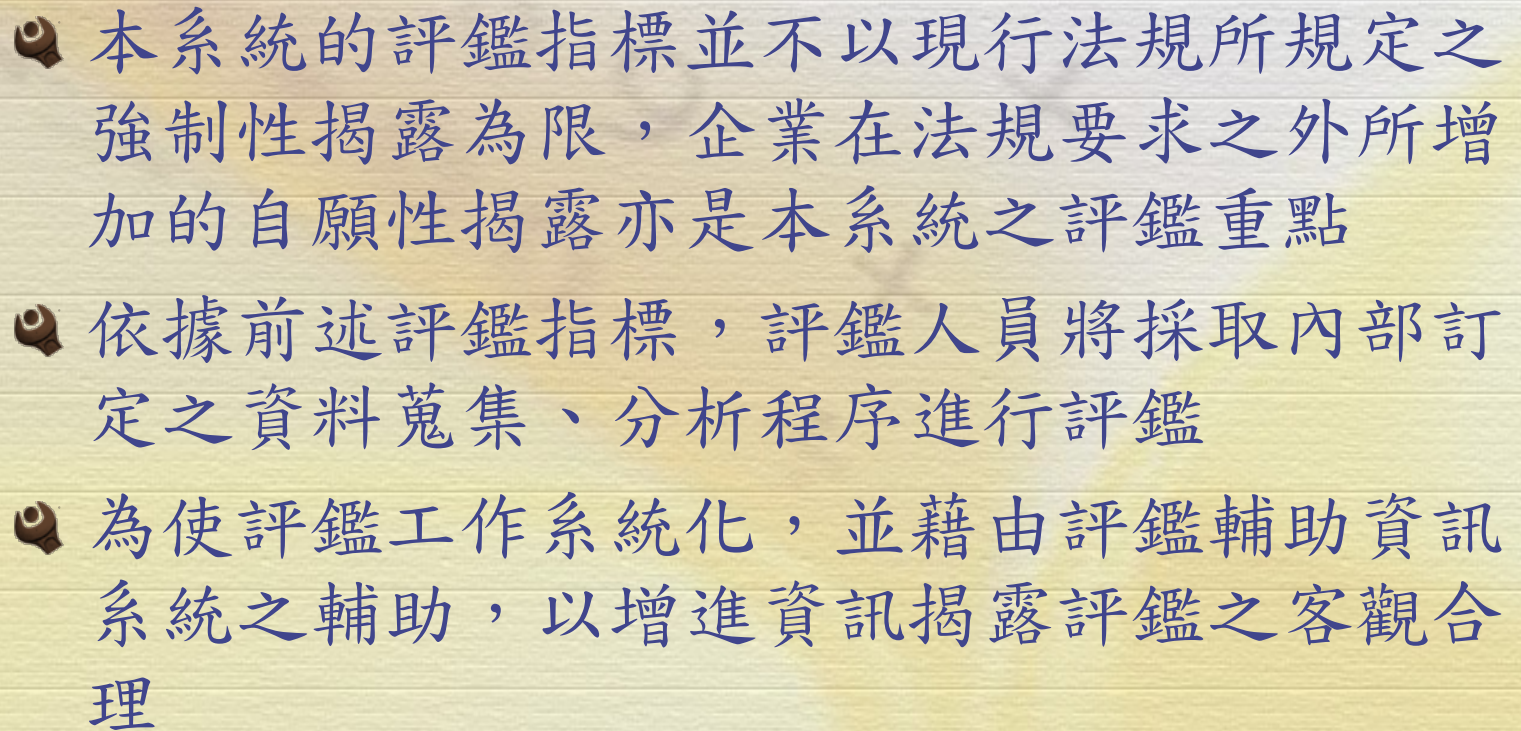 本系統的評鑑指標並不以現行法規所規定之
強制性揭露為限，企業在法規要求之外所增
加的自願性揭露亦是本系統之評鑑重點
依據前述評鑑指標，評鑑人員將採取內部訂
定之資料蒐集、分析程序進行評鑑
為使評鑑工作系統化，並藉由評鑑輔助資訊
系統之輔助，以增進資訊揭露評鑑之客觀合
理